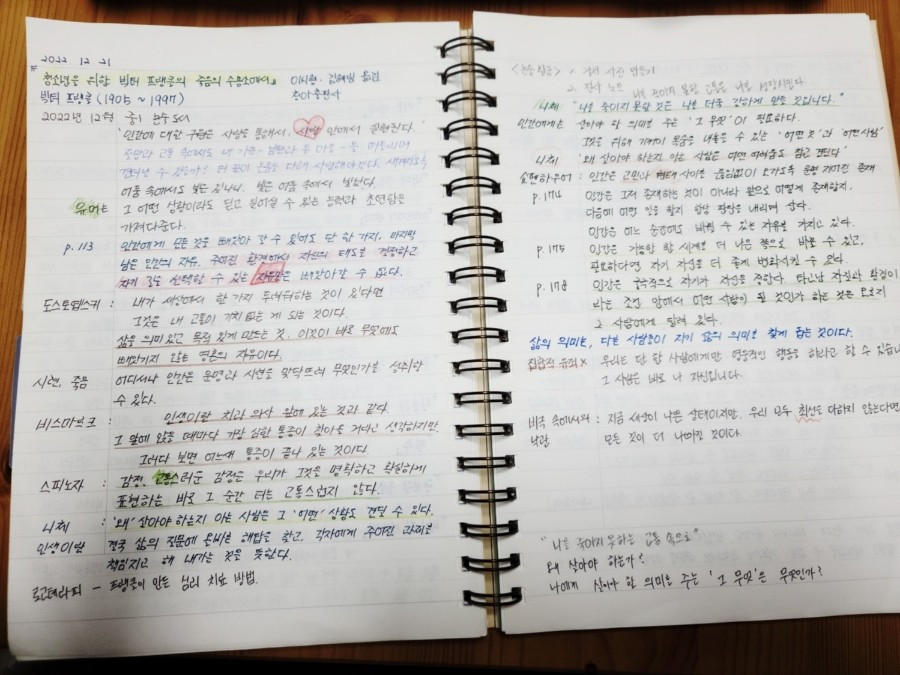 2022 12 21
청소년을 위한 빅터 프랭클의 죽음의 수용소에서』 이시형 · 옮김
빅터 프랭클 (1905 ~ 1997)
2022년 12월 중1
"인간에 대한 구원은 사랑을 통해서, 사랑 안에서 실현된다."
어둠 속에서도 빛은 있나니. 빛은 어둠 속에서 빛난다.
유머는 그 어떤 상황이라도 딛고 일어설 수 있는 능력과 초연함을
가져다준다.
p.113 인간에게 모든 것을 빼앗아 갈 수 있어도 단 한 가지, 마지막
남은 인간의 자유, 주어진 환경에서 자신의 태도를 결정하고
자기 길을 선택할 수 있는 자유만은 빼앗아갈 수 없다.
도스토옙스키 : 내가 세상에서 한 가지 두려워하는 것이 있다면
그것은 내 고통이 가치 없는 게 되는 것이다.
삶을 의미있고 목적 있게 만드는 것. 이것이 바로 무엇에도
빼앗기지 않는 영혼의 자유이다.
시련, 죽음 어디서나 인간은 운명과 시련을 맞닥뜨려 무엇인가를 성취할
수 있다.
비스마르크 : 인생이란 치과 의사 앞에 있는 것과 같다.
그 앞에 앉을 때마다 가장 심한 통증이 찾아올 거라고 생각하지만,
그러다 보면 어느새 통증이 끝나 있는 것이다.
스피노자 : 감정, 고통스러운 감정은 우리가 그것을 명확하고 확실하게
표현하는 바로 그 순간 더는 고통스럽지 않다.
니체 : '왜' 살아야 하는지 아는 사람은 그 '어떤' 상황도 견딜 수 있다.
인생이란 결국 삶의 질문에 올바른 해답을 찾고, 각자에게 주어진 과제를
책임지고 해 내가는 것을 뜻한다.
로고테라피 - 프랭클이 만든 심리 치료 방법.
2. 감사 노트
니체 "나를 죽이지 못할 것은 나를 더욱 강하게 만들 것입니다."
인간에게는 살아야 할 의미를 주는 '그 무엇'이 필요하다.
그것을 위해 기꺼이 목숨을 내놓을 수 있는 '어떤 것'과 '어떤 사람'
니체 "왜 살아야 하는지 아는 사람은 어떤 어려움도 참고 견딘다"
쇼펜하우어 : 인간은 고민과 권태 사이를 끊임없이 오가도록 운명 지어진 존재
p.174 인간은 그저 존재하는 것이 아니라 앞으로 어떻게 존재할지,
다음에 어떤 일을 할지 항상 판단을 내리며 산다.
인간은 어느 순간에도 바뀔 수 있는 자유를 가지고 있다.
p.175 인간은 가능한 한 세계를 더 나은 쪽으로 바꿀 수 있고,
필요하다면 자기 자신을 더 좋게 변화시킬 수 있다.
p.178 인간은 궁극적으로 자기가 자신을 결정한다. 타고난 자질과 환경이
라는 조건 안에서 어떤 사람이 될 것인가 하는 것은 오로지
그 사람에게 달려 있다.
삶의 의미는, 다른 사람들이 자기 삶의 의미를 찾게 돕는 것이다.
집합적 유죄 × 우리는 단 한 사람에게만 영웅적인 행동을 하라고 할 수 있습니
그 사람은 바로 나 자신입니다.
비극 속에서의 : 지금 세상이 나쁜 상태이지만, 우리 모두 최선을 다하지 않는다면
낙관 모든 것이 더 나빠질 것이다.
"나를 죽이지 못하는 고통 속으로"
왜 살아야 하는가?
나에게 살아야 할 의미를 주는 '그 무엇'은 무엇인가?